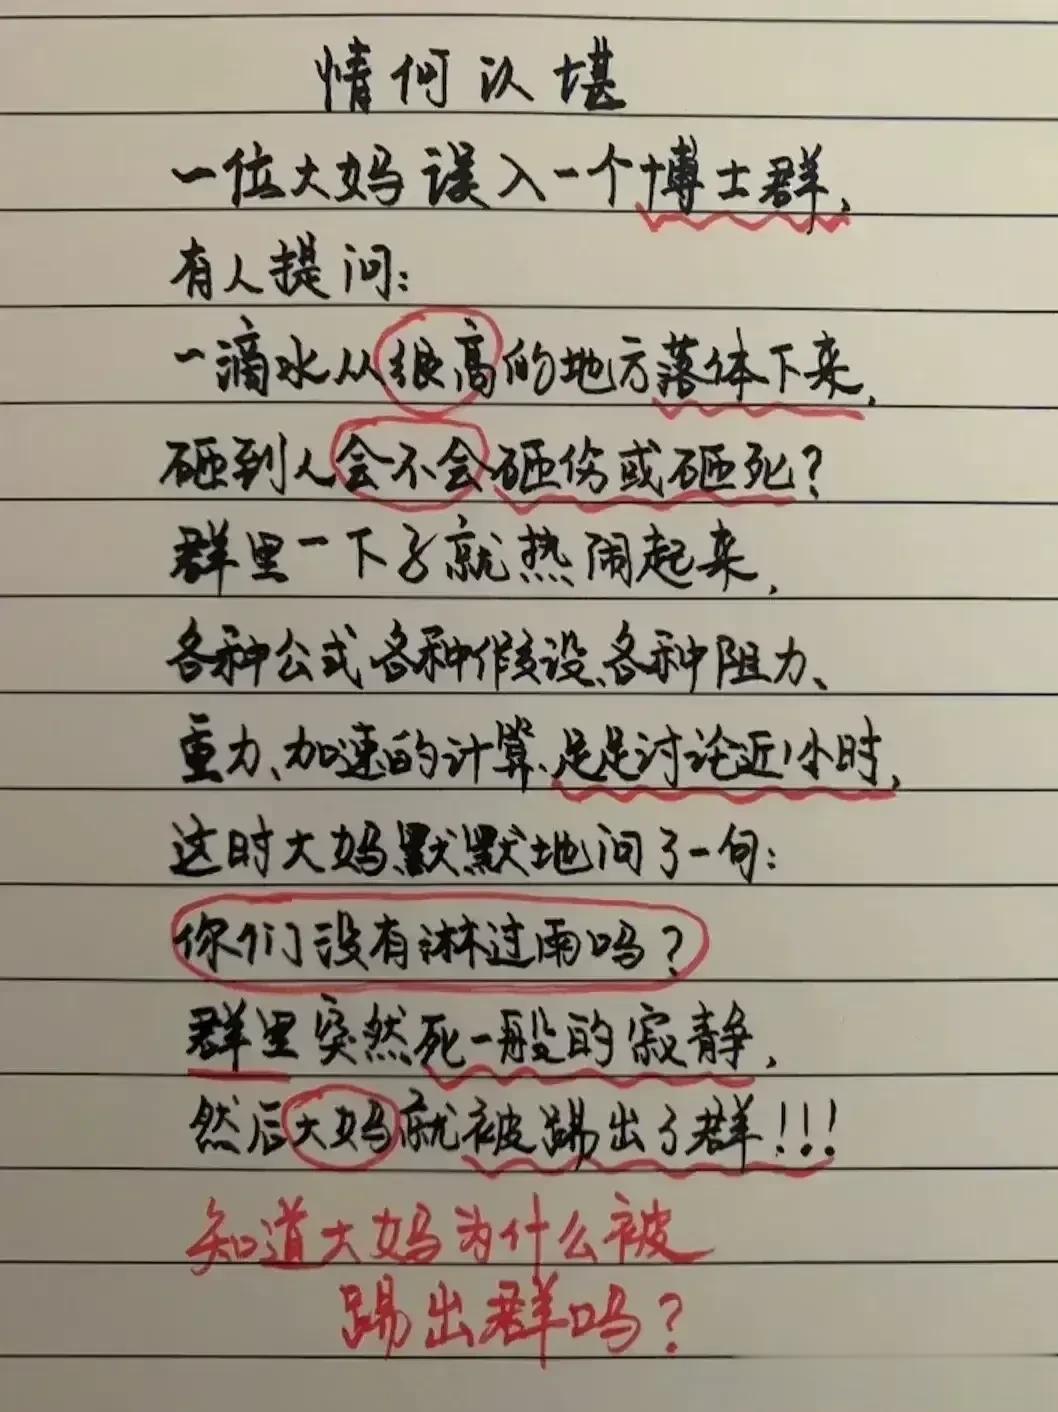 情何以堪
一位大妈误入一个博士群，
有人提问：
一滴水从很高的地方落体下来，
砸到人会不会砸伤或砸死？
群里一下子就热闹起来，
各种公式各种假设、各种阻力、
重力、加速的计算、足足讨论近1小时，
这时大妈默默地问了一句：
你们没有淋过雨吗？
群里突然死一般的寂静，
然后大妈就被踢出了群!!!
知道大妈为什么被
踢出群吗？